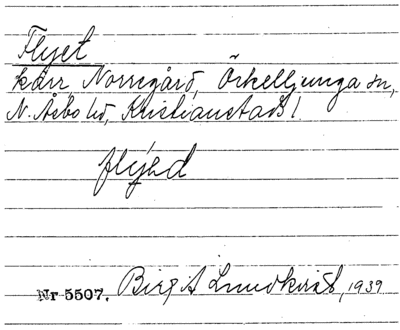 Flyet
kärr, Norregård, Örkelljunga sn,
N. Åsbo hd, Kristianstads l
flýed
Nr 5507. Birgit Lundkvist, 1939